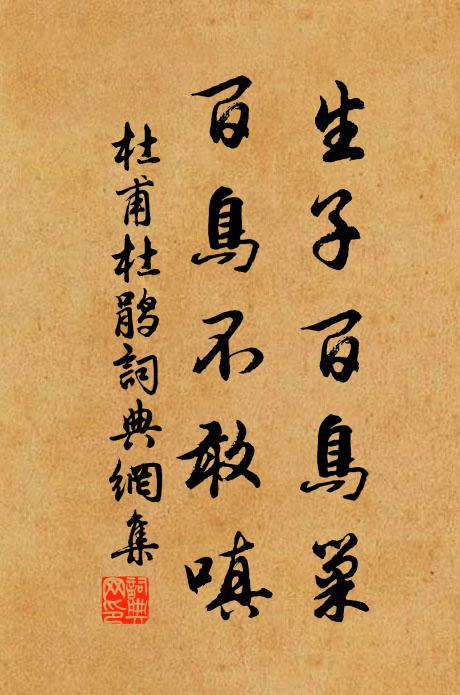 生子百鳥巢
百鳥不敢嗔
杜甫杜鹃詞典網集
詞典
网印